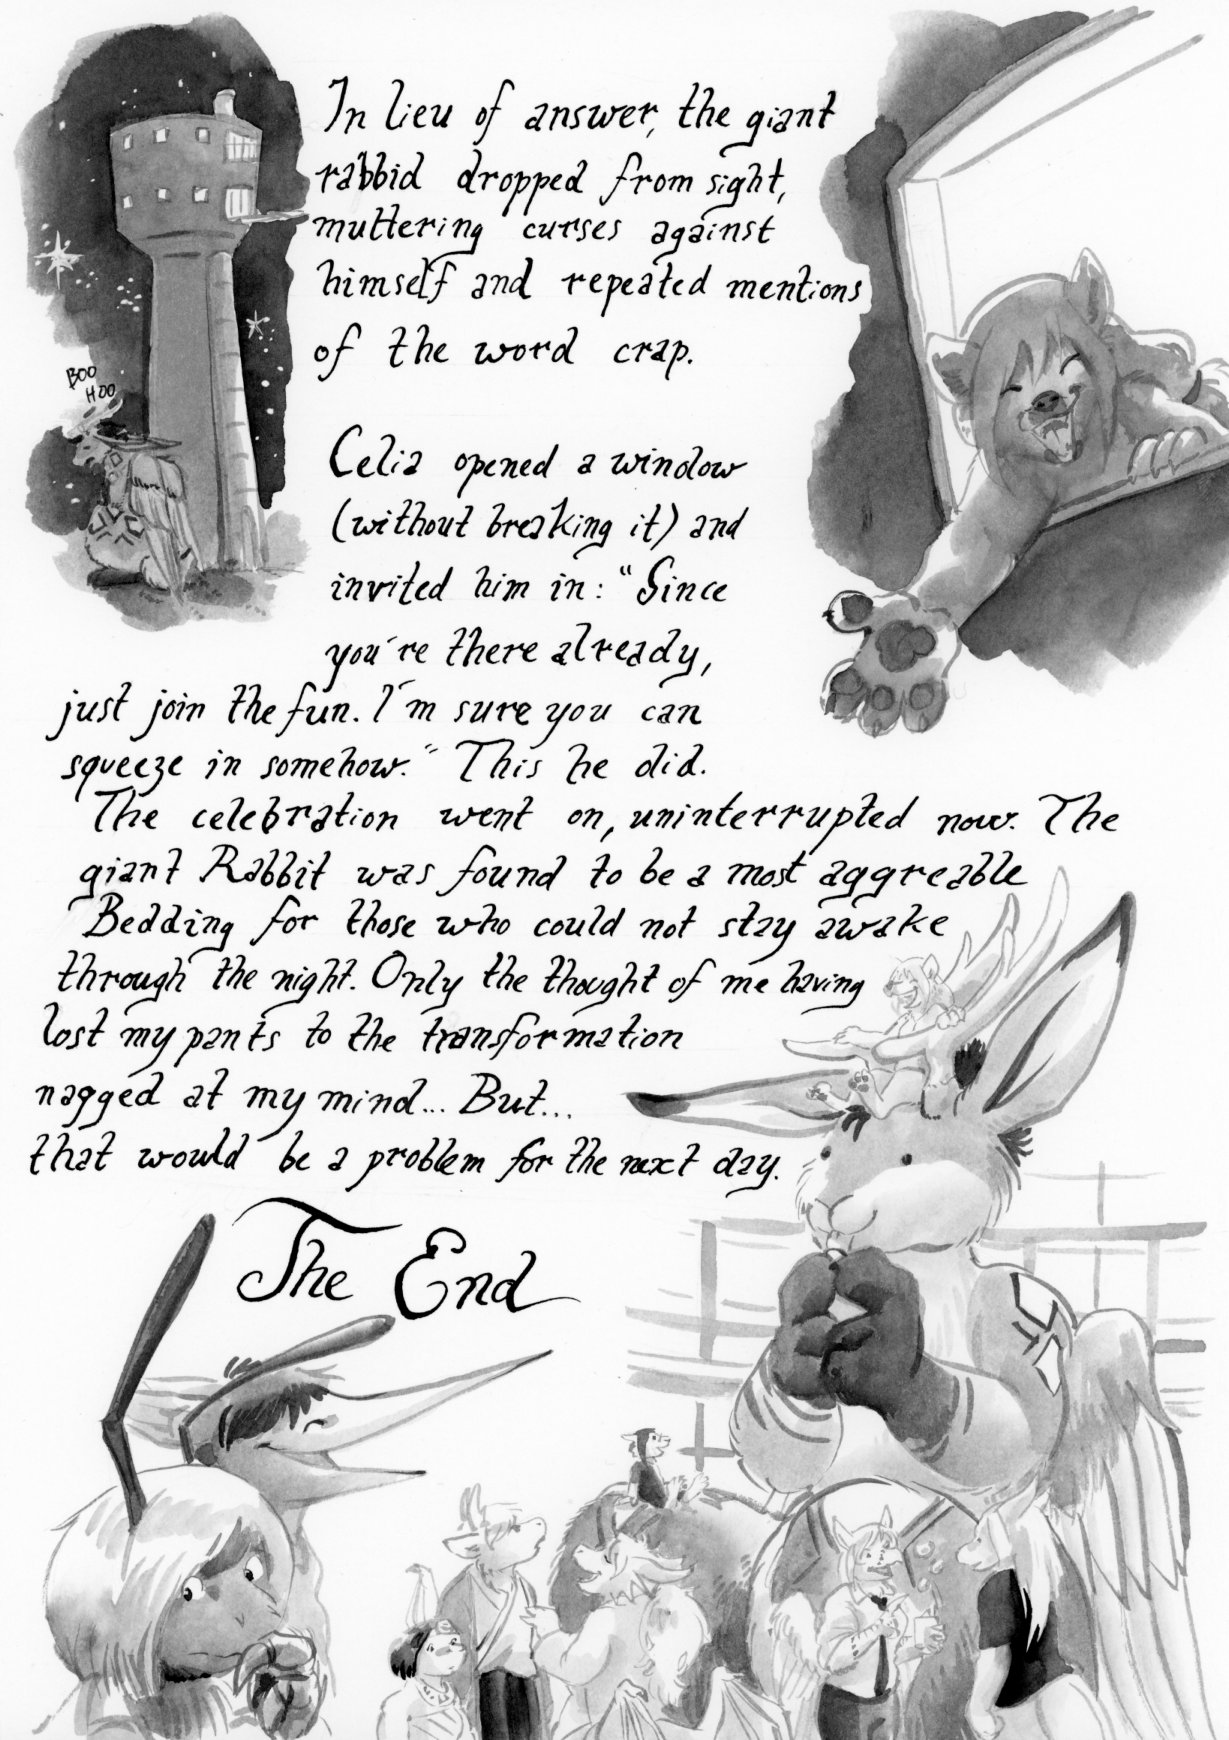 In lieu of answer, the giant
rabbid dropped from sight,
muttering curses against
himself and repeated mentions
of the word crap.
BOO
HOO
Celia opened a window
(without breaking it) and
invited him in: "Since
you're there already,
just join the fun. I'm sure you can
squeeze in somehow." This he did.
The celebration went on, uninterrupted now. The
giant Rabbit was found to be a most aggreable
Bedding for those who could not stay awake
through the night. Only the thought of me having
lost my pants to the transformation
nagged at my mind... But...
that would be a problem for the next day.
The End